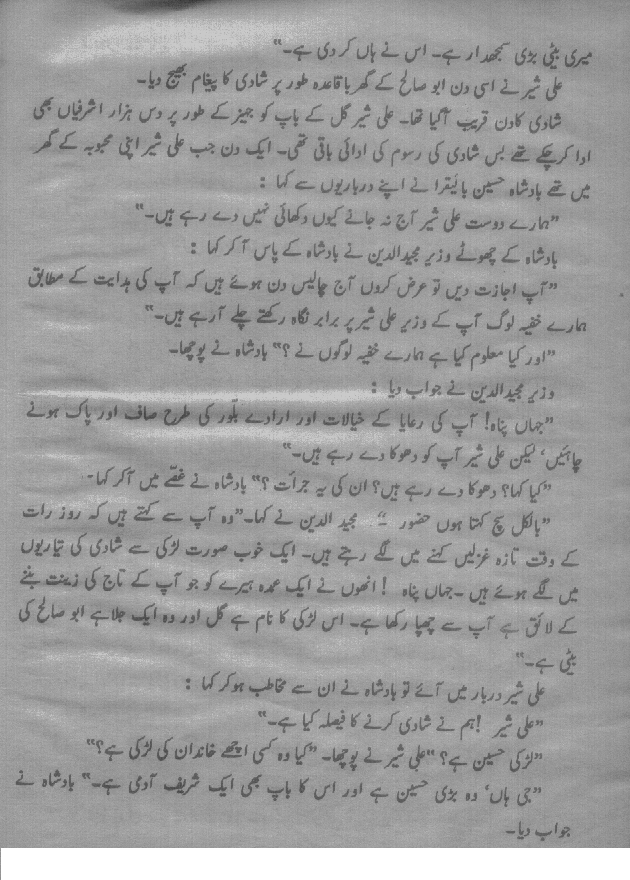 میری بیٹی بڑی سمجھدار ہے۔ اس نے ہاں کر دی ہے۔“
علی شیر نے اسی دن ابو صالح کے گھر باقاعدہ طور پر شادی کا پیغام بھیج دیا۔
شادی کا دن قریب آگیا تھا۔ علی شیر گل کے باپ کو جہیز کے طور پر دس ہزار اشرفیاں بھی
ادا کر چکے تھے بس شادی کی رسوم کی ادائی باقی تھی۔ ایک دن جب علی شیر اپنی محبوبہ کے گھر
میں تھے بادشاہ حسین بائیقرا نے اپنے درباریوں سے کہا :
”ہمارے دوست علی شیر آج نہ جانے کیوں دکھائی نہیں دے رہے ہیں۔“
بادشاہ کے چھوٹے وزیر مجیدالدین نے بادشاہ کے پاس آ کر کہا :
”آپ اجازت دیں تو عرض کروں آج چالیس دن ہوئے ہیں کہ آپ کی ہدایت کے مطابق
ہمارے خفیہ لوگ آپ کے وزیر علی شیر پر برابر نگاہ رکھتے چلے آرہے ہیں۔“
”اور کیا معلوم کیا ہے ہمارے خفیہ لوگوں نے ؟“ بادشاہ نے پوچھا۔
وزیر مجیدالدین نے جواب دیا :
”جہاں پناہ! آپ کی رعایا کے خیالات اور ارادے بلّور کی طرح صاف اور پاک ہونے
چاہئیں، لیکن علی شیر آپ کو دھوکا دے رہے ہیں۔“
”کیا کہا؟ دھوکا دے رہے ہیں؟ ان کی یہ جرأت ؟“ بادشاہ نے غصّے میں آکر کہا۔
”بالکل سچ کہتا ہوں حضور ۔“ مجید الدین نے کہا۔”وہ آپ سے کہتے ہیں کہ روز رات
کے وقت تازہ غزلیں کہنے میں لگے رہتے ہیں۔ ایک خوب صورت لڑکی سے شادی کی تیاریوں
میں لگے ہوئے ہیں ۔جہاں پناہ ! انھوں نے ایک عمدہ ہیرے کو جو آپ کے تاج کی زینت بننے
کے لائق ہے آپ سے چھپا رکھا ہے۔ اس لڑکی کا نام ہے گل اور وہ ایک جلاہے ابو صالح کی
بیٹی ہے۔“
علی شیر دربار میں آئے تو بادشاہ نے ان سے مخاطب ہوکر کہا :
”علی شیر !ہم نے شادی کرنے کا فیصلہ کیا ہے۔“
”لڑکی حسین ہے؟ “علی شیر نے پوچھا۔ ”کیا وہ کسی اچھے خاندان کی لڑکی ہے؟“
”جی ہاں، وہ بڑی حسین ہے اور اس کا باپ بھی ایک شریف آدمی ہے۔“ بادشاہ نے
جواب دیا۔